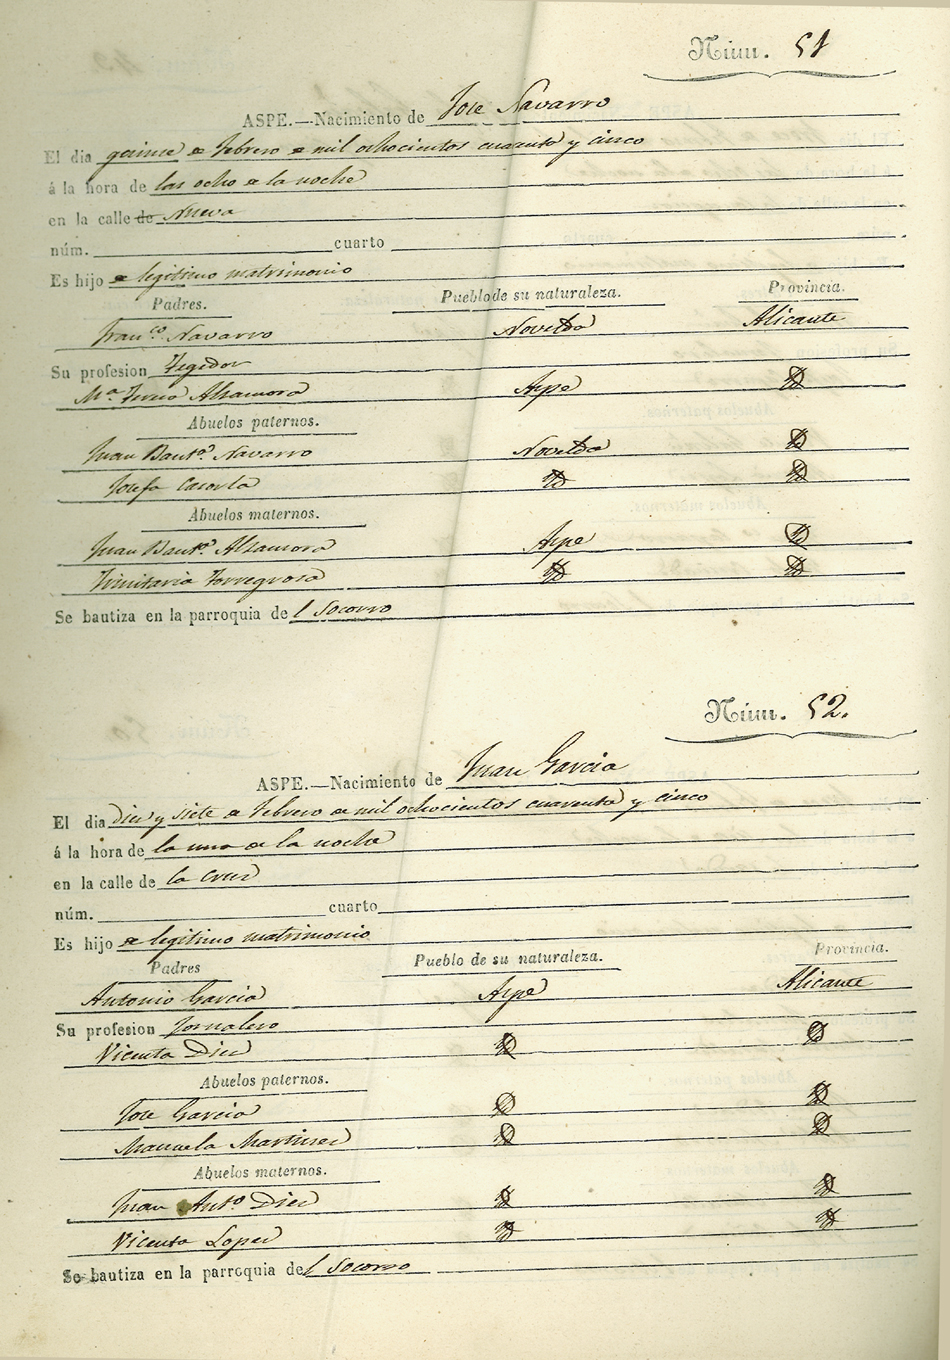 Núm. 51
ASPE.—Nacimiento de Jose Navarro
El dia quince de Febrero de mil ochocientos cuarenta y cinco
á la hora de las ocho de la noche
en la calle de Nueva
núm. cuarto
Es hijo de legitimo matrimonio
Padres. Pueblo de su naturaleza. Provincia.
Franco. Navarro Novelda Alicante
Su profesion Tegedor
Ma Alzamora Aspe Id
Abuelos paternos.
Juan Bauta. Navarro Novelda Id
Josefa Cazorla Id Id
Abuelos maternos.
Juan Bauta. Alzamora Aspe Id
Trinitaria Torregrosa Id Id
Se bautiza en la parroquia del Socorro
Núm. 52.
ASPE.—Nacimiento de Juan Garcia
El dia diez y siete de Febrero de mil ochocientos cuarenta y cinco
á la hora de la una de la noche
en la calle de la Cruz
núm. cuarto
Es hijo de legitimo matrimonio
Padres Pueblo de su naturaleza. Provincia.
Antonio Garcia Aspe Alicante
Su profesion Jornalero
Vicenta Diez Id Id
Abuelos paternos.
Jose Garcia Id Id
Manuela Martinez Id Id
Abuelos maternos.
Juan Anto. Diez Id Id
Vicenta Lopez Id Id
Se bautiza en la parroquia del Socorro